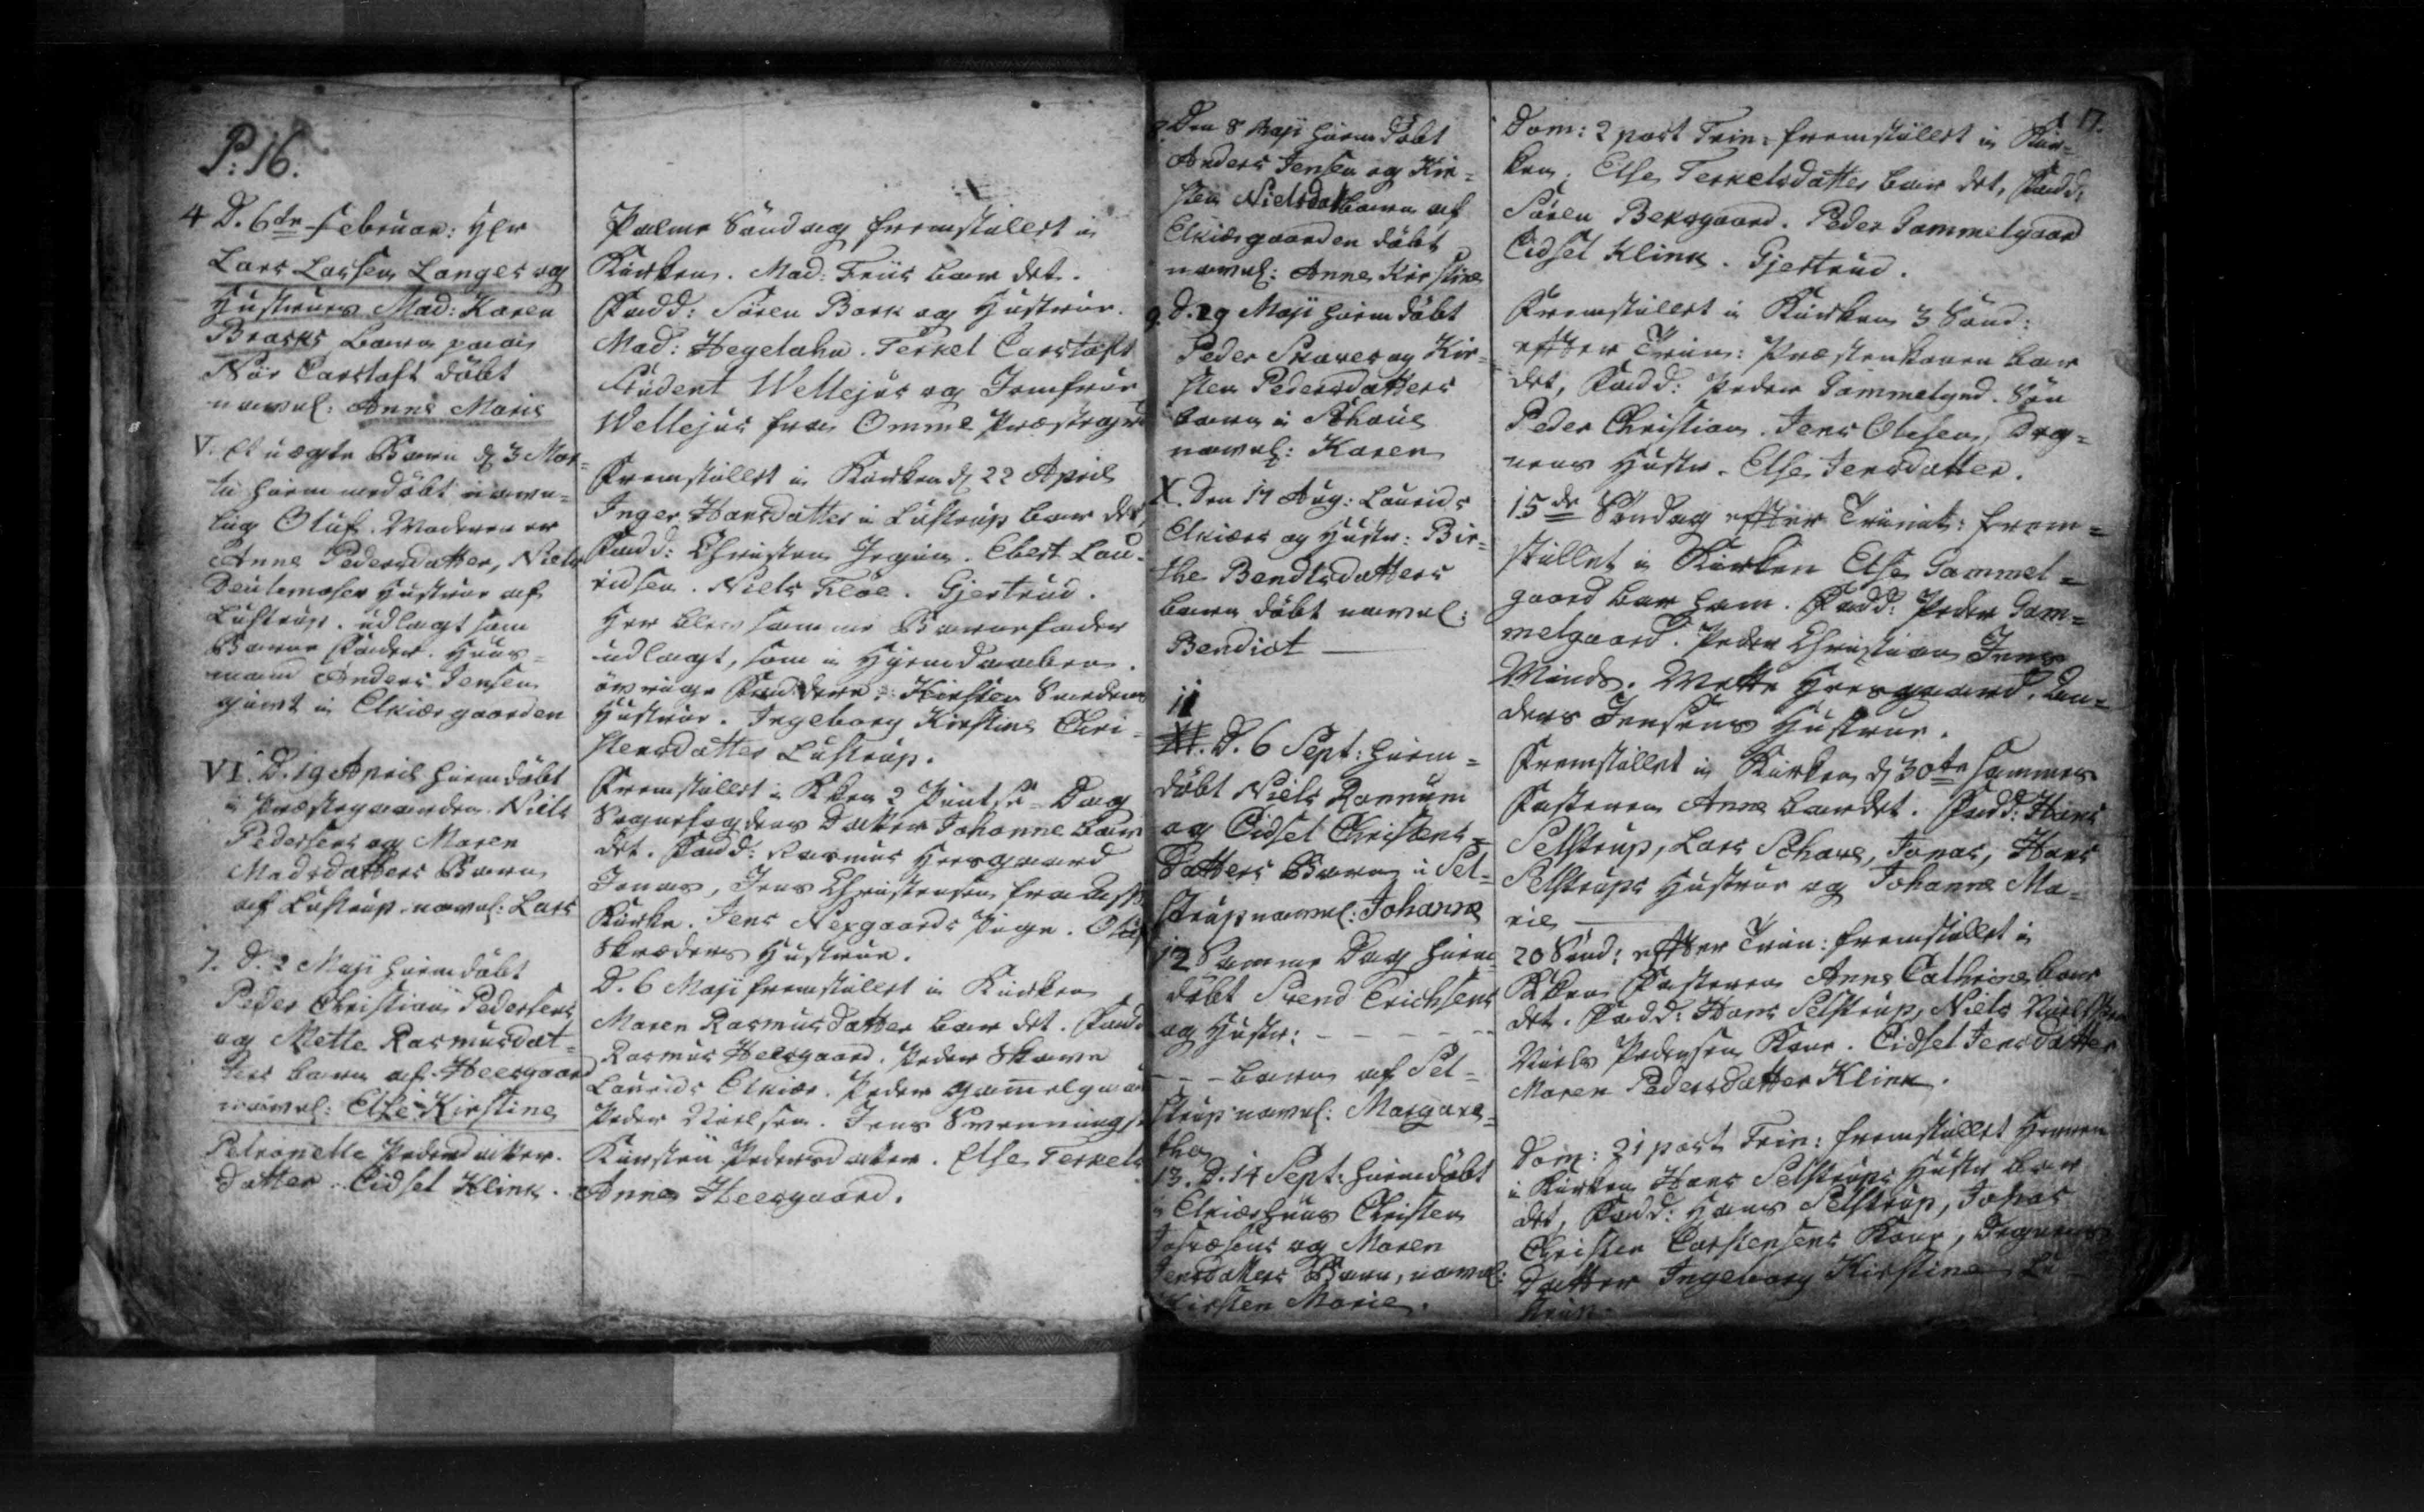 P: 16.
4 D. 6te Februar: Hr
Lars Lassen Langes og
Hustrues Mad: Karen
Brasks barn paa
Nør Carstoft döbt
navnl: Anne Marie
V. Et uægte Barn d 3 Mar-
tii hiemmedöbt navn-
lig Oluf. Moderen er
Anne Pedersdatter, Niels
Hustrue af
Lustrup. udlagt som
Barne Fader. Huus-
mand Anders Jensen
givt i Elkiærgaarden
VI. D. 19 April hiemdöbt
i Præstegaarden Niels
Pedersens og Maren
Madsdatters Barn
af Lustrup navnl: Lars
7. D. 2 Maji hiemdöbt
Peder Christian Pedersens
og Mette Rasmusdat-
ters barn af Heesgaard
navnl: Else Kirstine
Petronelle Pedersdatter.
datter. Cidsel Klink.
Palme Söndag fremstillet i
Kirken. Mad: Friis bar det.
Fadd: Sören Bork og Hustrue.
Mad: Hegelahn. Terkel Carstoft
Student Wellejus og Jomfrue
Wellejus fra Omme Præstegrd
Fremstillet i Kirken d 22 April
Inger Hansdatter i Lustrup bar det,
Fadd: Christen. Ebert Lau-
ridsen. Niels Fløe. Gjertrud.
Her blev samme Barnefader
udlagt, som i Hjemdaaben.
övrige Faddere: Kirsten Smedens
Hustrue. Ingeborg Kirstine Chri-
stensdatter Lustrup.
Fremstillet i Kken 2 Pintse Dag
Sognefogdens Datter Johanne bar
det. Fadd: Rasmus Heesgaard
Jonas, Jens Christensen fra
Kirke. Jens Nexgaards Pige. Oluf
Skræders Hustrue.
D. 6 Maji fremstillet i Kirken
Maren Rasmusdatter bar det. Fadd
Rasmus Heesgaard. Peder Skaver
Laurids Elkiær. Peder Gamelgaard
Peder Nielsen. Jens Svenningse
Kirsten Pedersdatter. Else Terkels
Anne Heesgaard.
8 Den 8 Maji hiem Döbt
Anders Jensen og Kir-
sten Nielsdat barn af
Elkiærgaarden döbt
navnl: Anne Kirstine
9. D. 29 Maji hiemdöbt
Peder Skaver og Kir-
sten Pedersdatters
barn i
navnl: Karen
X. Den 17 Aug: Laurids
Elkiærs og Hustr: Bir-
the Bendtsdatters
barn döbt navnl:
Bendict
11
XI. D. 6 Sept: hiem-
döbt Niels Ronnum
og Cidsel Christens-
Datters Barn i Sel-
strup navnl: Johanne
12 Samme Dag hiem-
döbt Svend Erichsens
og Hustr: - - - - -
- - - barn af Sel-
strup navnl: Margare-
the
13. D. 14 Sept: hiemdöbt
i Elkiærhuus Christen
og Maren
Jensdatters Barn, navnl:
Kirsten Marie.
17.
Dom: 2 post Trin: fremstillet i Kir-
ken, Else Terkelsdatter bar det, Fadd:
Sören Bergaard. Peder Gammelgaard
Cidsel Klink. Gjertrud.
Fremstillet i Kirken 3 Sönd:
efter Trin: Præstenkonen bar
det, Fadd: Peder Gammelgrd. Sön
Peder Christian. Jens Olesen, Deg-
nens Hustr. Else Jensdatter.
15de Söndag efter Trinit: frem-
stillet i Kirken Else Gammel-
gaard bar ham. Fadd: Peder Gam-
melgaard. Peder Christian Jens
Minds. Mette Heesgaard. An-
ders Jensens Hustrue.
Fremstillet i Kirken d 30te samme
Fasteren Anne bar det. Fadd: Hans
Selstrup, Lars Schave, Jonas, Hans
Selstrups Hustrue og Johanne Ma-
rie
20 Sönd: efter Trin: fremstillet i
Kken Fasteren Anne Cathrine bar
det. Fadd: Hans Selstrup, Niels
Niels Pedersens Kone. Cidsel Jensdatter
Maren Pedersdatter Klink.
Dom: 21 post Trin: fremstillet
i Kirken Hans Selstrups Hustr bar
det, Fadd: Hans Selstrup, Jonas
Christen Carstensens Kone, Degnens
Datter Ingeborg Kirstine Lu-
strup.